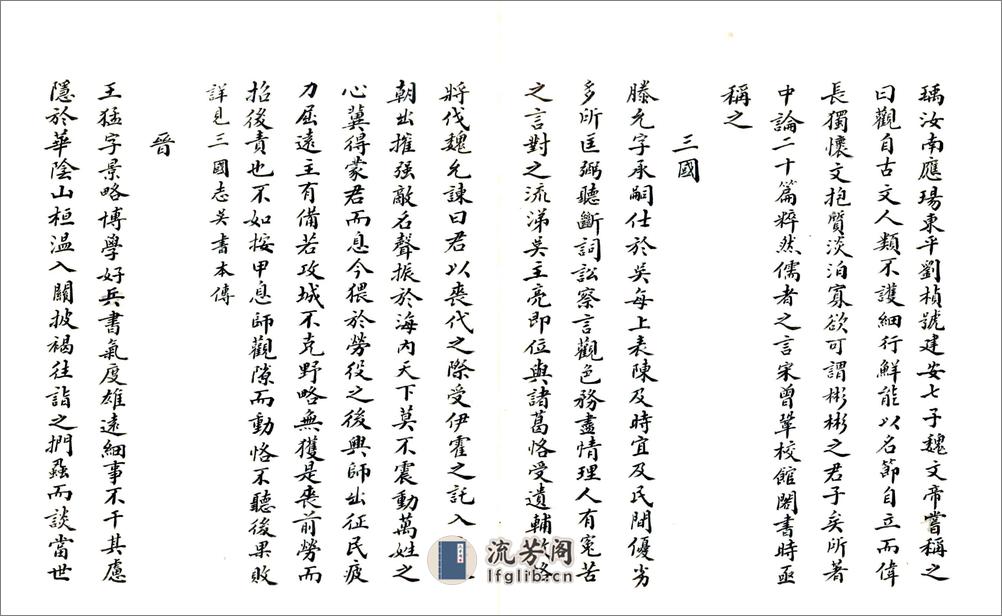 瑀汝南應瑒東平劉楨號建安七子魏文帝嘗稱之
曰觀自古文人類不護細行鮮能以名節自立而偉
長獨懷文抱質淡泊寡欲可謂彬彬之君子矣所著
中論二十篇粹然儒者之言宋曾鞏校館閣書時亟
稱之
三國
滕允字承嗣仕於吳每上表陳及時宜及民間優劣
多所匡弼聽斷詞訟察言觀色務盡情理人有寃苦
之言對之流涕吳主亮即位與諸葛恪受遺輔恪
將伐魏允諫曰君以喪代之際受伊霍之託入
朝出摧强敵名聲振於海內天下莫不震動萬姓之
心冀得蒙君而息今猥於勞役之後興師出征民疲
力屈遠主有備若攻城不克野略無獲是喪前勞而
招後責也不如按甲息師觀隙而動恪不聽後果敗
詳見三國志吳書本傳
晉
王猛字景略博學好兵書氣度雄遠細事不干其慮
隱於華陰山桓温入關披褐往詣之捫蝨而談當世
流芳阁
lfglib.cn